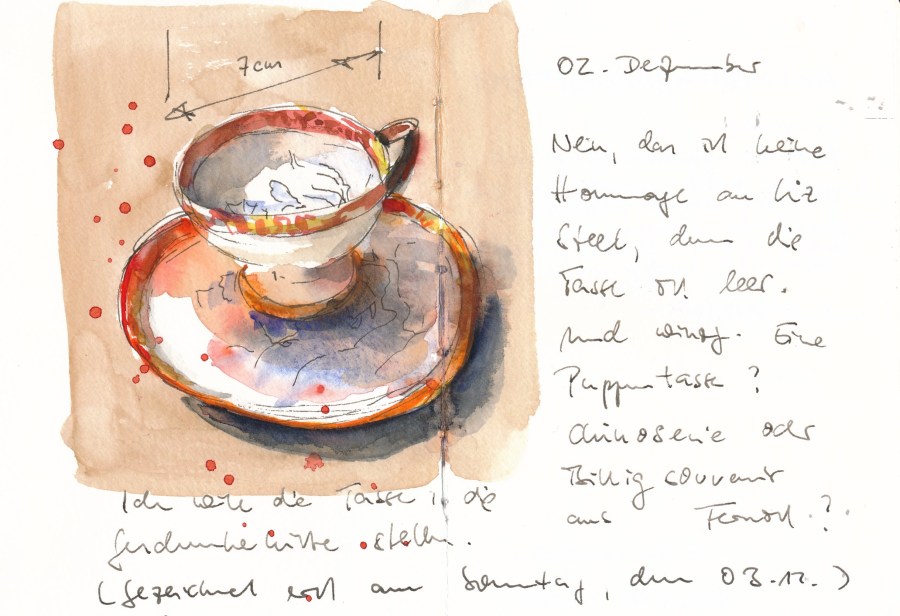 7cm
02. Dezember
Nein, das ist keine
Hommage an Liz
Steel, denn die
Tasse ist leer.
Und winzig. Eine
Puppentasse?
Chinoserie oder
Billigsouvenir
aus Fernost?
Ich die Tasse in die
Geschenkekiste stellen.
(Gezeichnet erst am Sonntag, den 03.12.)